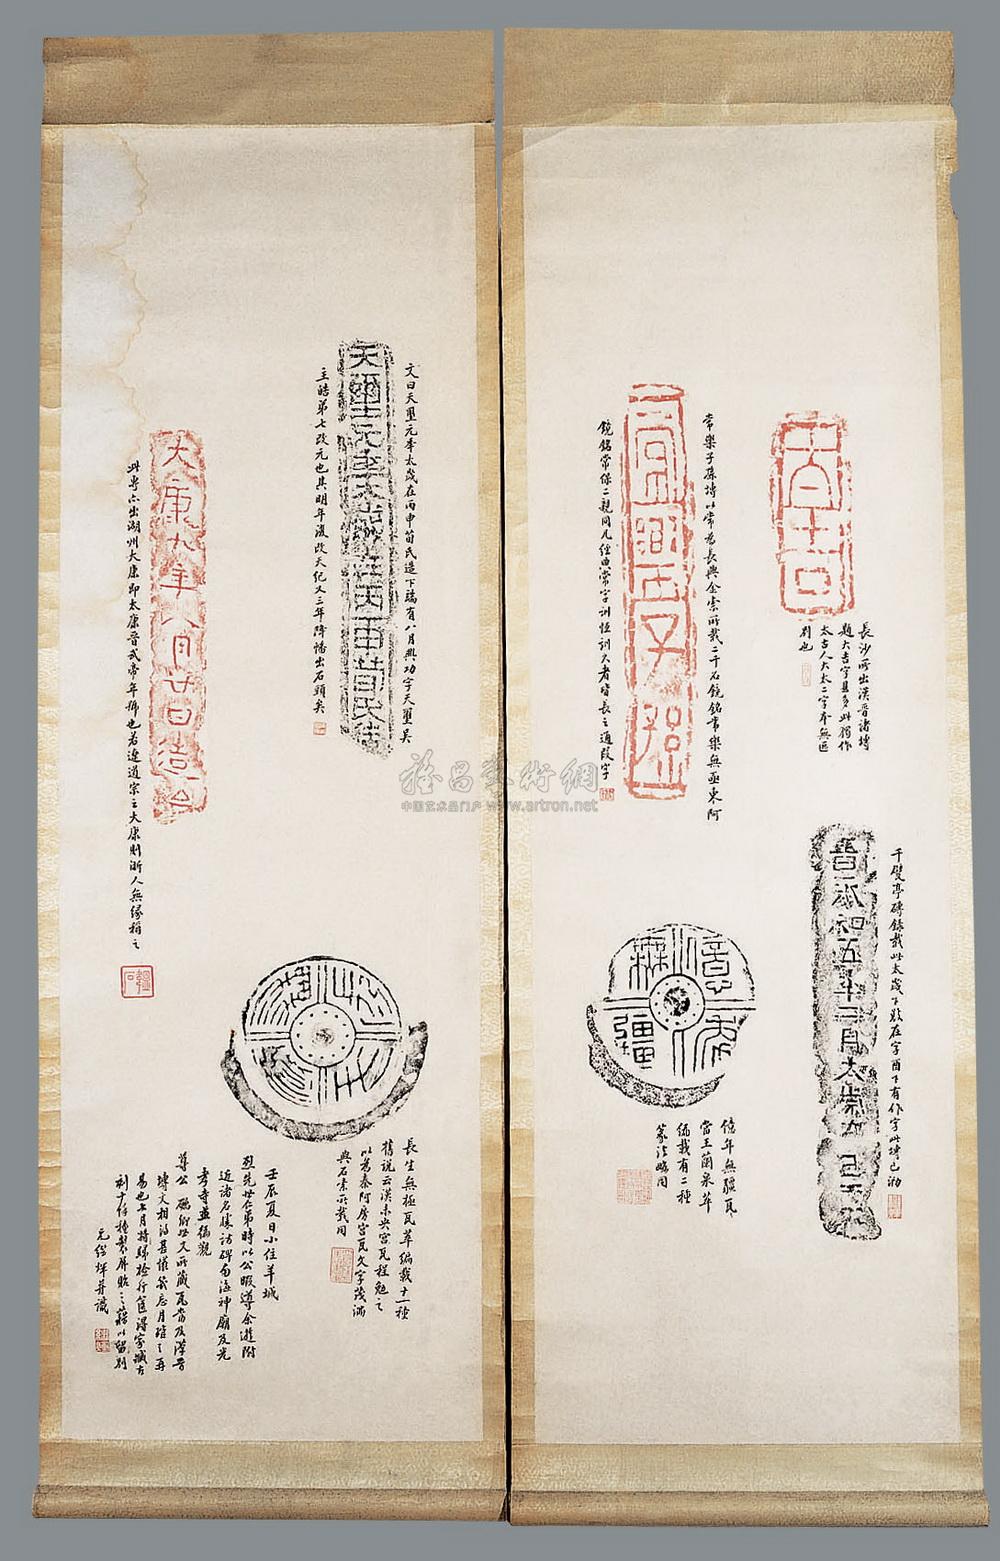 大吉
長沙所出漢晋諸塼
題大吉字甚多此獨作
太古人大太二字本無區
別也
常樂子孫塼以常為長與金索所載二千石鏡銘常樂無亟東阿
宜子孫
鏡銘常保二親同凡經典常字訓恆訓久者皆長之通叚字
千甓亭磚錄載此太歲下敚在字酉下有作字此塼已泐
晋永和五年二月太歲
億年無疆
億年無疆瓦
當王蘭泉萃
編載有二種
篆法略同
文曰天璽元年太歲在丙申荀氏造下端有八月興功字天璽吳
天璽元年太歲在丙申荀氏造
主皓第七改元也其明年復改天紀又三年降幡出石頭矣
大康九年八月廿日造
此専亦出湖州大康即太康晋武帝年號也若遼道宗之大康則浙人無緣稱之
長生無極瓦萃編載十一種
舊說云漢未央宮瓦程勉之
以為秦阿房宮瓦文字茂滿
與石索所載同
壬辰夏日小住羊城
先世仁弟時以公暇導余遊附
近諸名勝訪碑南海神廟及光
孝寺並徧觀
尊公 所藏瓦當及漢晋
塼文相得甚懽
易也七月將歸檢行篋得家藏古
刻十餘種製屏貽之藉以留別
并識
雅昌藝術網
中国艺术品门户 www.artron.net